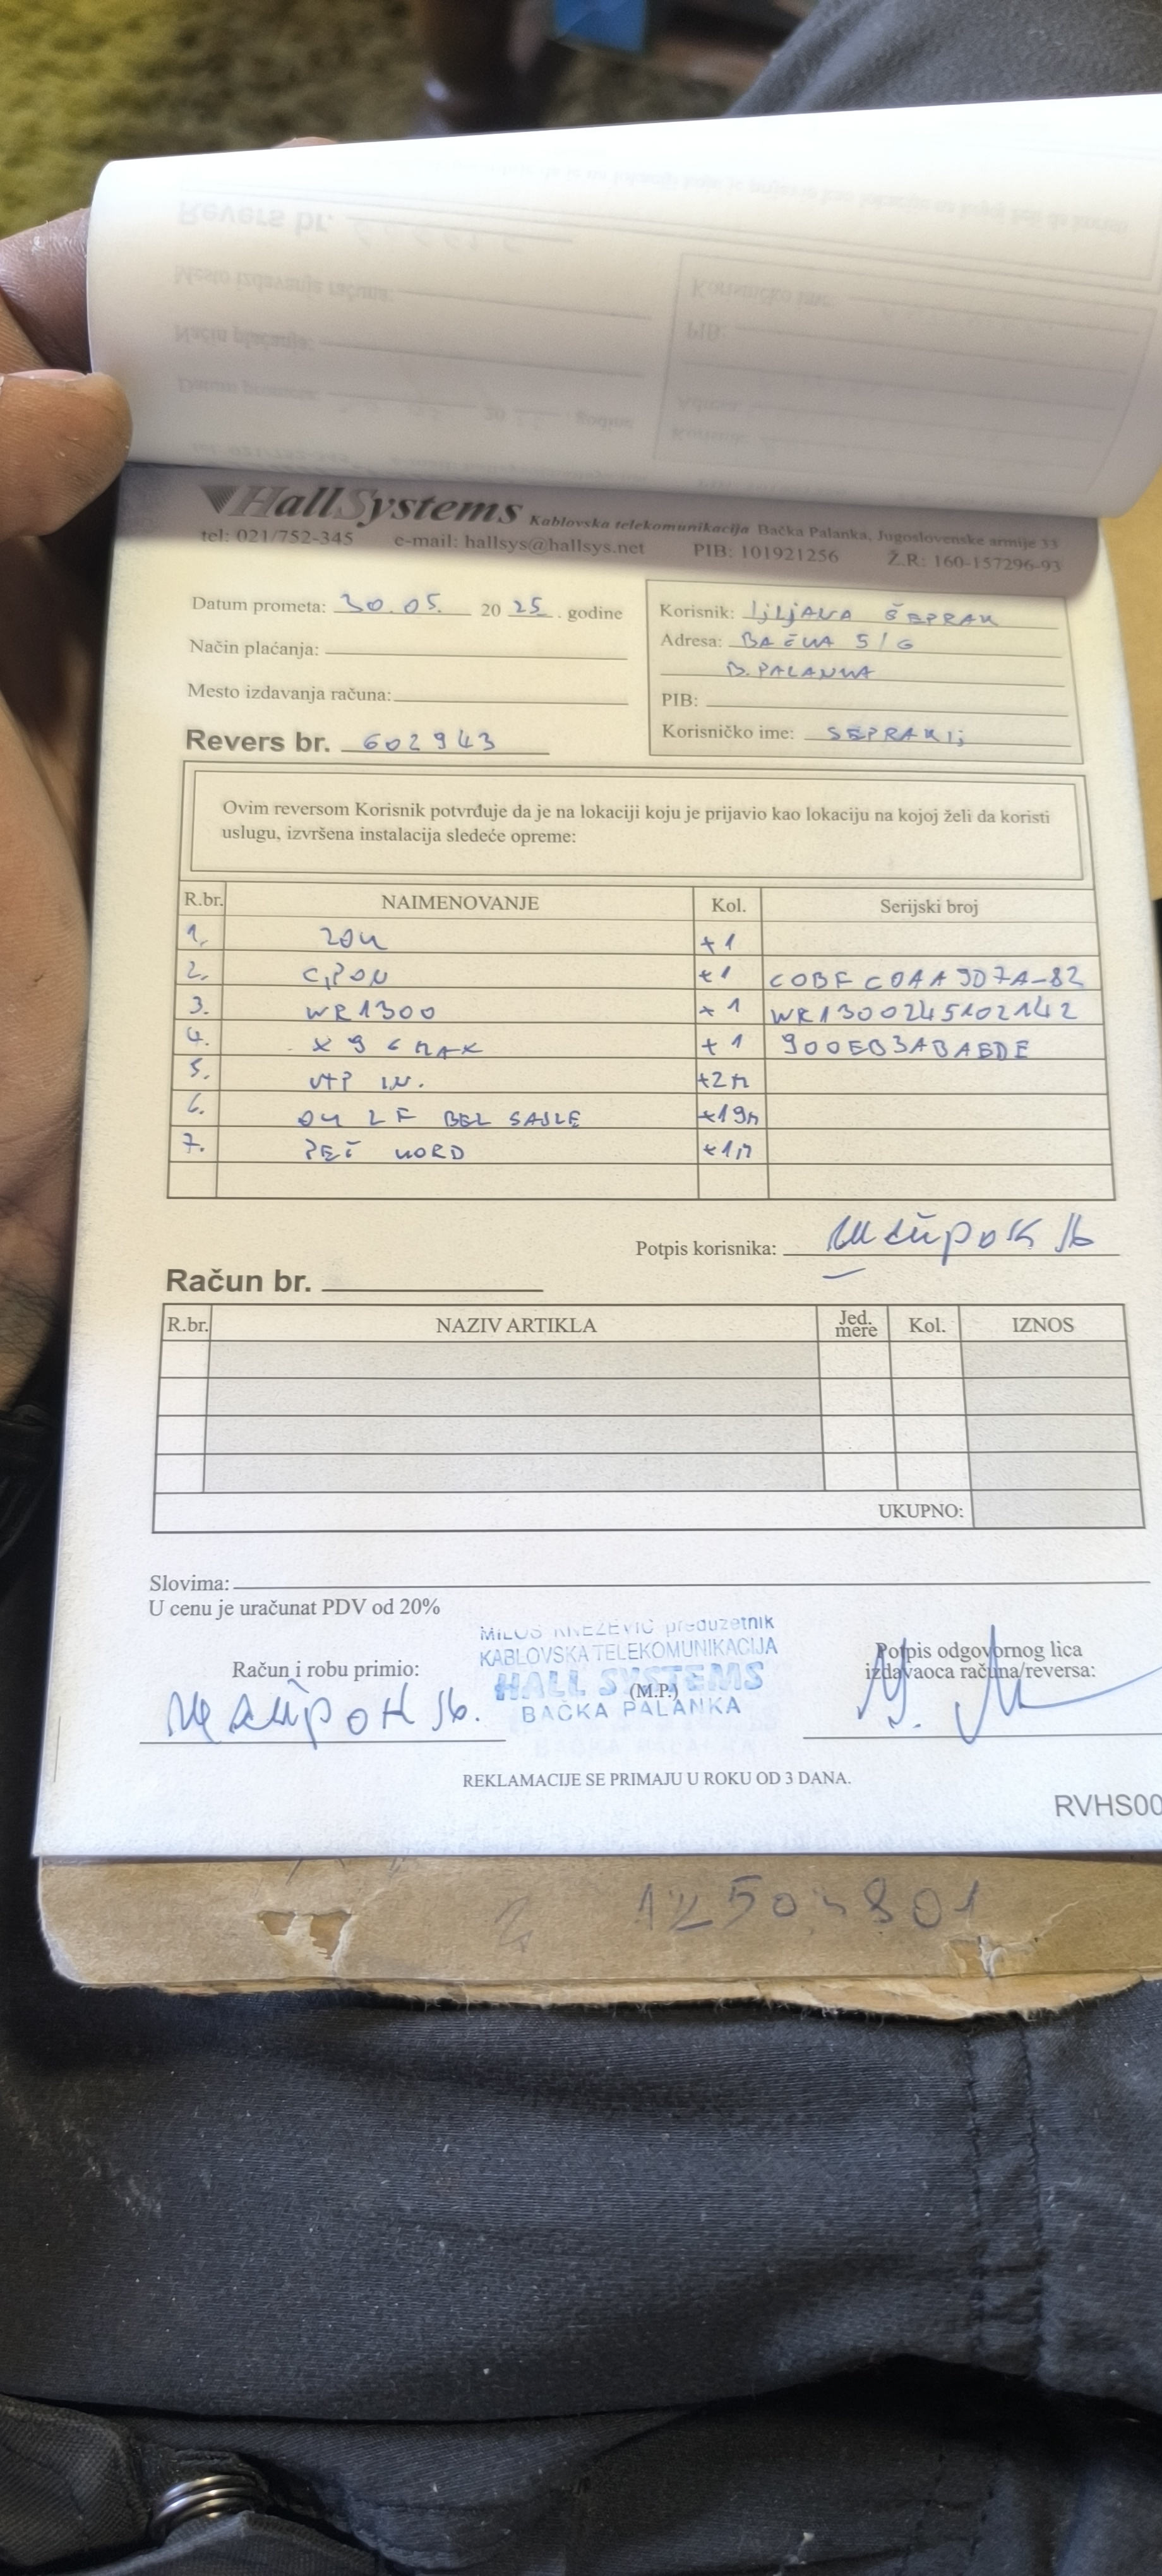 HallSystems Kablovska telekomunikacija Bačka Palanka, Jugoslovenske armije 33
tel: 021/752-345 e-mail: hallsys@hallsys.net PIB: 101921256 Ž.R: 160-157296-93
Datum prometa: 30.05. 2025. godine
Način plaćanja:
Mesto izdavanja računa:
Revers br. 602943
Korisnik: LJILJANA ŠEPRAK
Adresa: 5/6
B. PALANKA
PIB:
Korisničko ime: SEPRAKLJ
Ovim reversom Korisnik potvrđuje da je na lokaciji koju je prijavio kao lokaciju na kojoj želi da koristi
uslugu, izvršena instalacija sledeće opreme:
R.br. NAIMENOVANJE Kol. Serijski broj
1. +1
2. GPON +1 C0BFC0AA9D7A-82
3. WR1300 +1 WR1300245102142
4. X96 MAX +1 900EB3ABAEDE
5. UTP IN. +2m
6. 2F BEL SAJLE +19m
7. PEČ KORD +1m
Potpis korisnika:
Račun br.
R.br. NAZIV ARTIKLA Jed. mere Kol. IZNOS
UKUPNO:
Slovima:
U cenu je uračunat PDV od 20%
MILOŠ KNEŽEVIĆ preduzetnik
KABLOVSKA TELEKOMUNIKACIJA
HALL SYSTEMS
(M.P.)
BAČKA PALANKA
Račun i robu primio:
Potpis odgovornog lica
izdavaoca računa/reversa:
REKLAMACIJE SE PRIMAJU U ROKU OD 3 DANA.
RVHS00